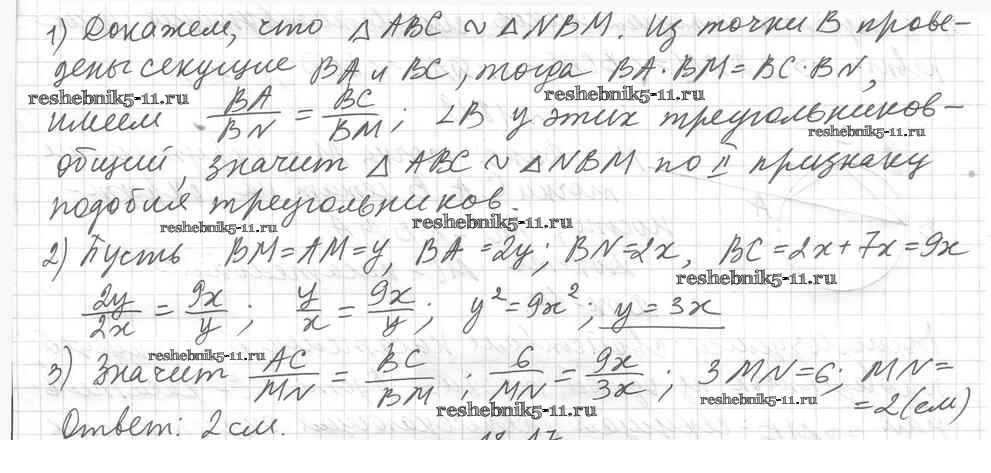 1) Докажем, что △ ABC ~ △ NBM. Из точки B прове-
дены секущие BA и BC, тогда BA·BM=BC·BN,
reshebnik5-11.ru reshebnik5-11.ru
имеем BA/BN = BC/BM; ∠B у этих треугольников-
reshebnik5-11.ru
общий, значит △ ABC ~ △ NBM по II признаку
подобия треугольников.
reshebnik5-11.ru reshebnik5-11.ru
2) Пусть BM=AM=y, BA=2y; BN=2x, BC=2x+7x=9x
reshebnik5-11.ru
2y/2x = 9x/y; y/x = 9x/y; y²=9x²; y=3x
reshebnik5-11.ru
3) Значит AC/MN = BC/BM; 6/MN = 9x/3x; 3MN=6; MN=
=2(см)
reshebnik5-11.ru reshebnik5-11.ru
Ответ: 2 см.